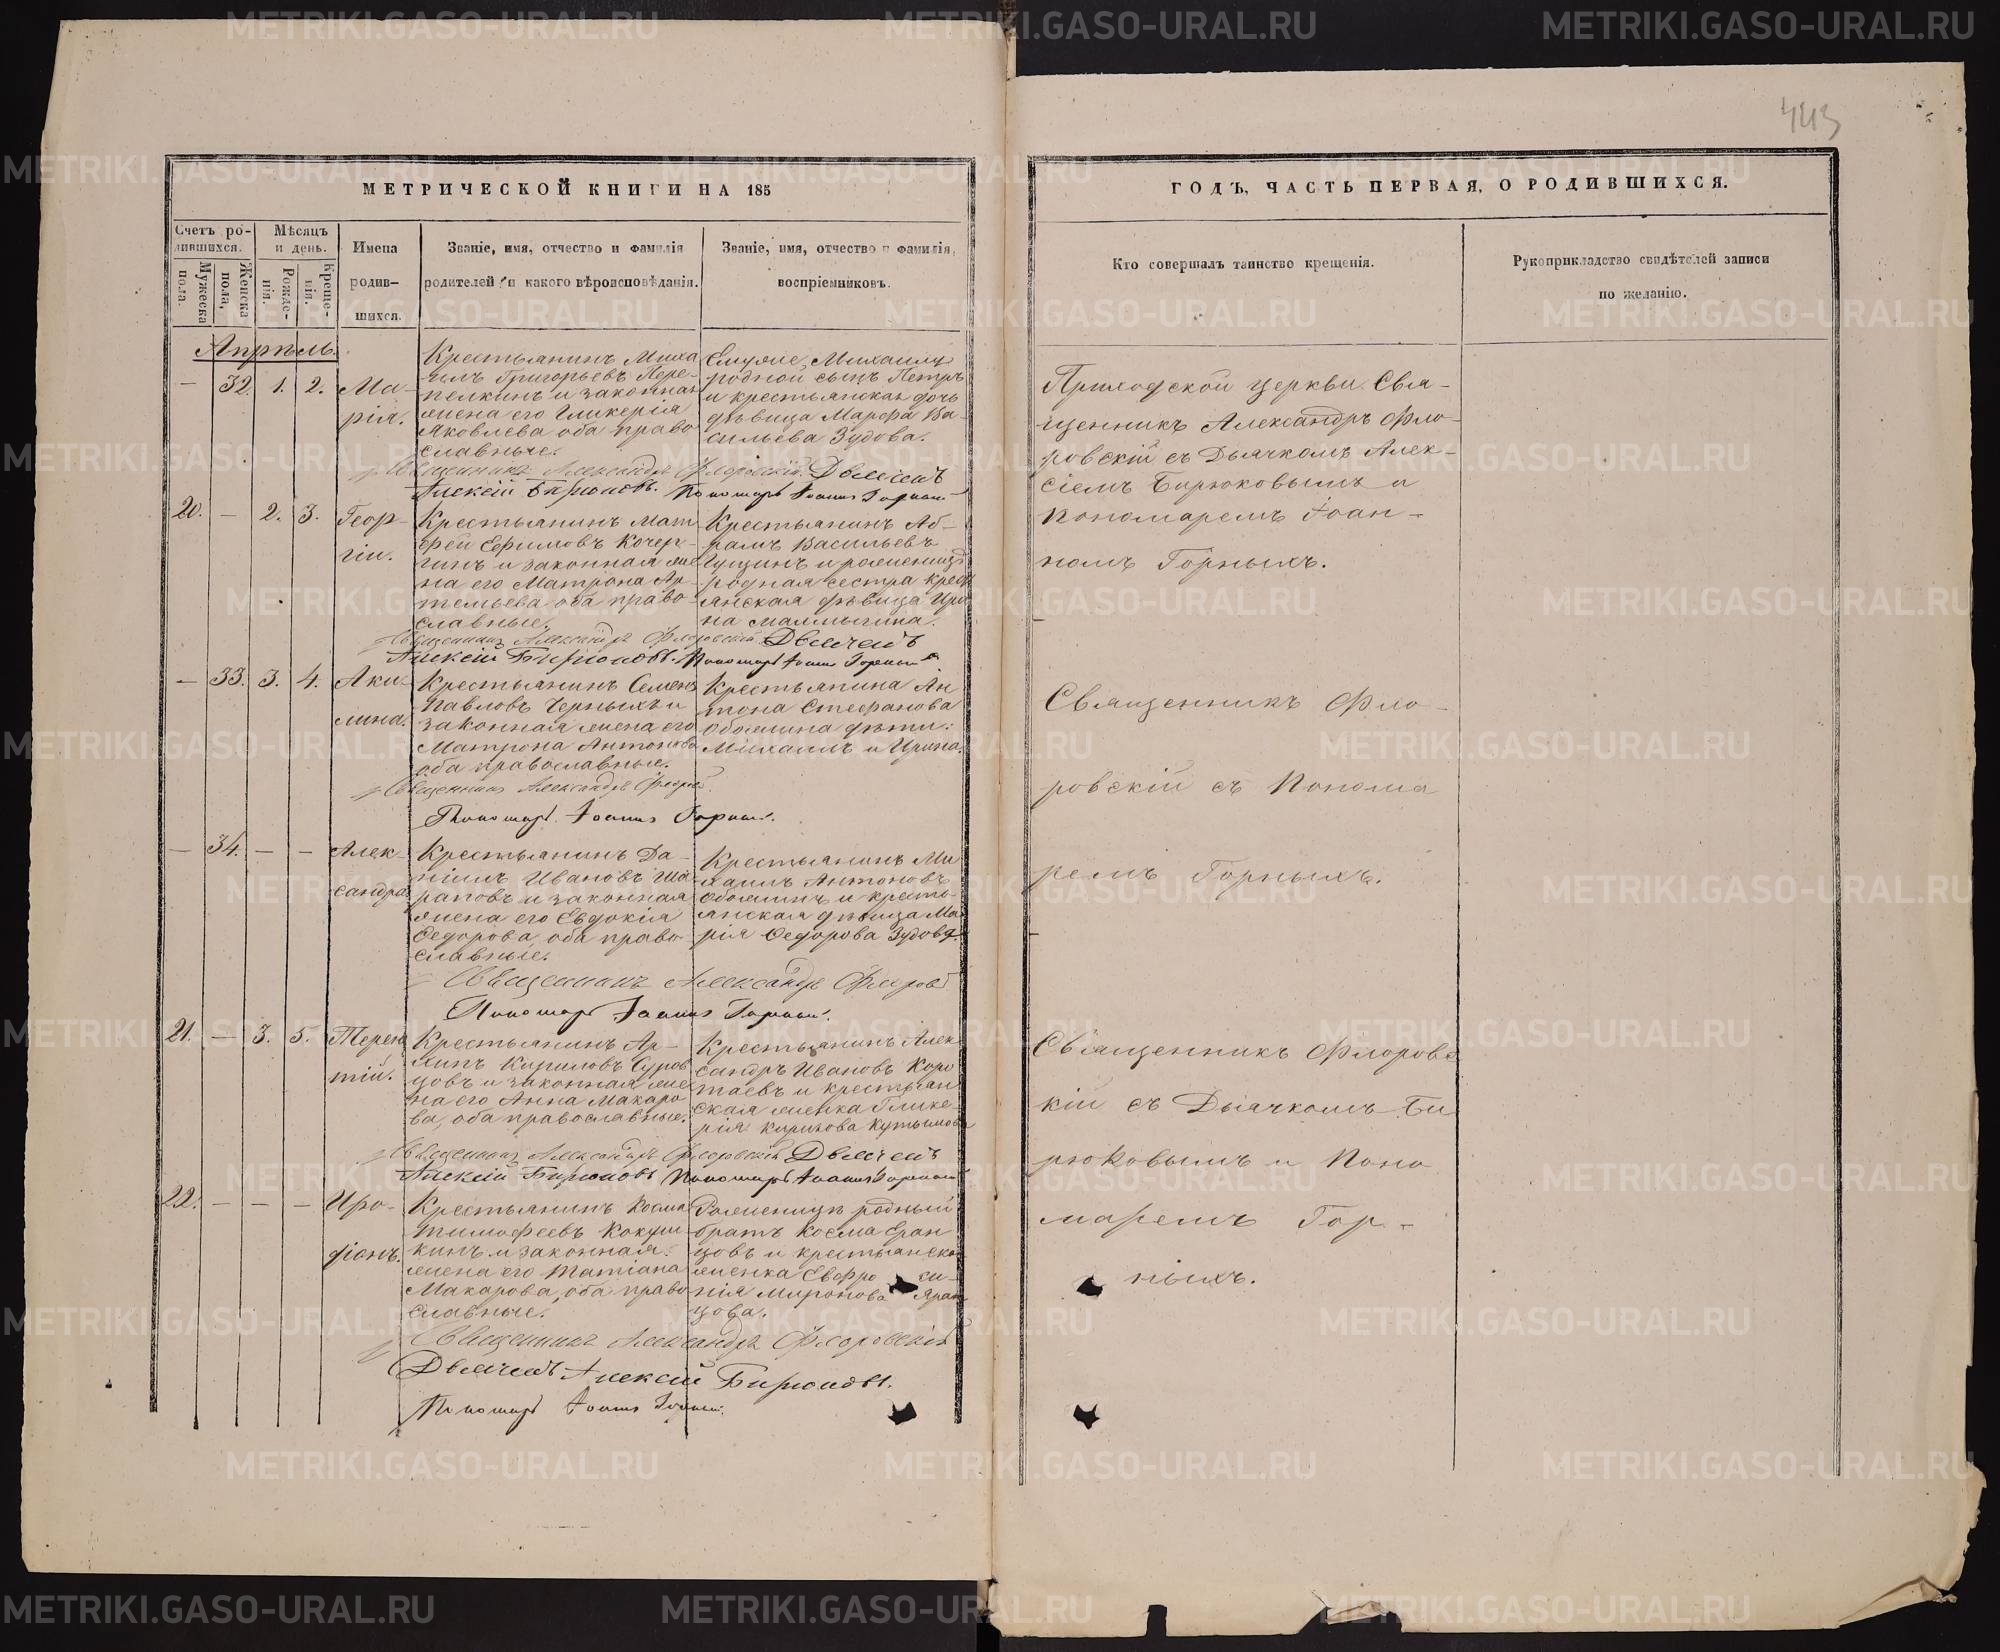 443
МЕТРИЧЕСКОЙ КНИГИ НА 185
ГОДЪ, ЧАСТЬ ПЕРВАЯ, О РОДИВШИХСЯ.
Счетъ ро-
дившихся.
Мужеска
пола.
Женска
пола,
Мѣсяцъ
и день.
Рожде-
нія.
Креще-
нія.
Имена
родив-
шихся.
Званіе, имя, отчество и фамилія
родителей и какого вѣроисповѣданія.
Званіе, имя, отчество и фамилія,
воспріемниковъ.
Кто совершалъ таинство крещенія.
Рукоприкладство свидѣтелей записи
по желанію.
Апрѣль.
— 32. 1. 2. Ма-
рія.
Крестьянинъ Миха
илъ Григорьевъ Пере-
пелкинъ и законная
жена его Гликерія
Яковлева оба право
славные.
Ему же, Михаилу
родной сынъ Петръ
и крестьянская дочь
дѣвица Марфа Ва-
сильева Зудова.
Священникъ Александръ Флоровскій. Дьячекъ
Алексій Бирюковъ. Пономарь Іоаннъ Горныхъ
Приходской церкви Свя-
щенникъ Александръ Фло-
ровскій съ Дьячкомъ Алек-
сіемъ Бирюковымъ и
Пономаремъ Іоан-
номъ Горныхъ.
20. — 2. 3. Геор-
гій.
Крестьянинъ Мат
фей Ефимовъ Кочер-
гинъ и законная же
на его Матрона Ар-
темьева оба право-
славные.
Крестьянинъ Аб-
рамъ Васильевъ
Гущинъ и роженицѣ
родная сестра крест
янская дѣвица Ири
на Малмыгина.
Священникъ Александръ Флоровскій Дьячекъ
Алексій Бирюковъ. Пономарь Іоаннъ Горныхъ.
— 33. 3. 4. Аки-
лина.
Крестьянинъ Семенъ
Павловъ Черныхъ и
законная жена его
Матрона Антонова
оба православные.
Крестьянина Ан
тона Стефанова
Обожина дѣти:
Михаилъ и Ирина.
Священникъ Александръ Флоров
Пономарь Іоаннъ Горныхъ.
Священникъ Фло-
ровскій съ Понома
ремъ Горныхъ.
— 34. — — Алек-
сандра
Крестьянинъ Да-
ніилъ Ивановъ Ша-
раповъ и законная
жена его Евдокія
Федорова, оба право
славные.
Крестьянинъ Ми
хаилъ Антоновъ
Обожинъ и кресть-
янская дѣвица Ма-
рія Федорова Зудова.
Священникъ Александръ Флоров
Пономарь Іоаннъ Горныхъ.
21. — 3. 5. Терен
тій.
Крестьянинъ Ар-
хипъ Кириловъ Суров
цовъ и законная же
на его Анна Макаро
ва, оба православные.
Крестьянинъ Алек
сандръ Ивановъ Коро
таевъ и крестьян
ская женка Глике-
рія Кирилова Кутьинова
Священникъ Александръ Флоровскій Дьячекъ
Алексій Бирюковъ Пономарь Іоаннъ Горныхъ
Священникъ Флоровс
кій съ Дьячкомъ Би
рюковымъ и Поно
маремъ Гор-
ныхъ.
22. — — — Иро-
діонъ.
Крестьянинъ Косма
Тимофеевъ Кокуш
кинъ и законная
жена его Татіана
Макарова, оба право
славные.
Роженицѣ родный
братъ Косма Еран
цовъ и крестьянска
женка Евфро си-
нія Миронова Яран
цова.
Священникъ Александръ Флоровскій
Дьячекъ Алексій Бирюковъ.
Пономарь Іоаннъ Горныхъ.